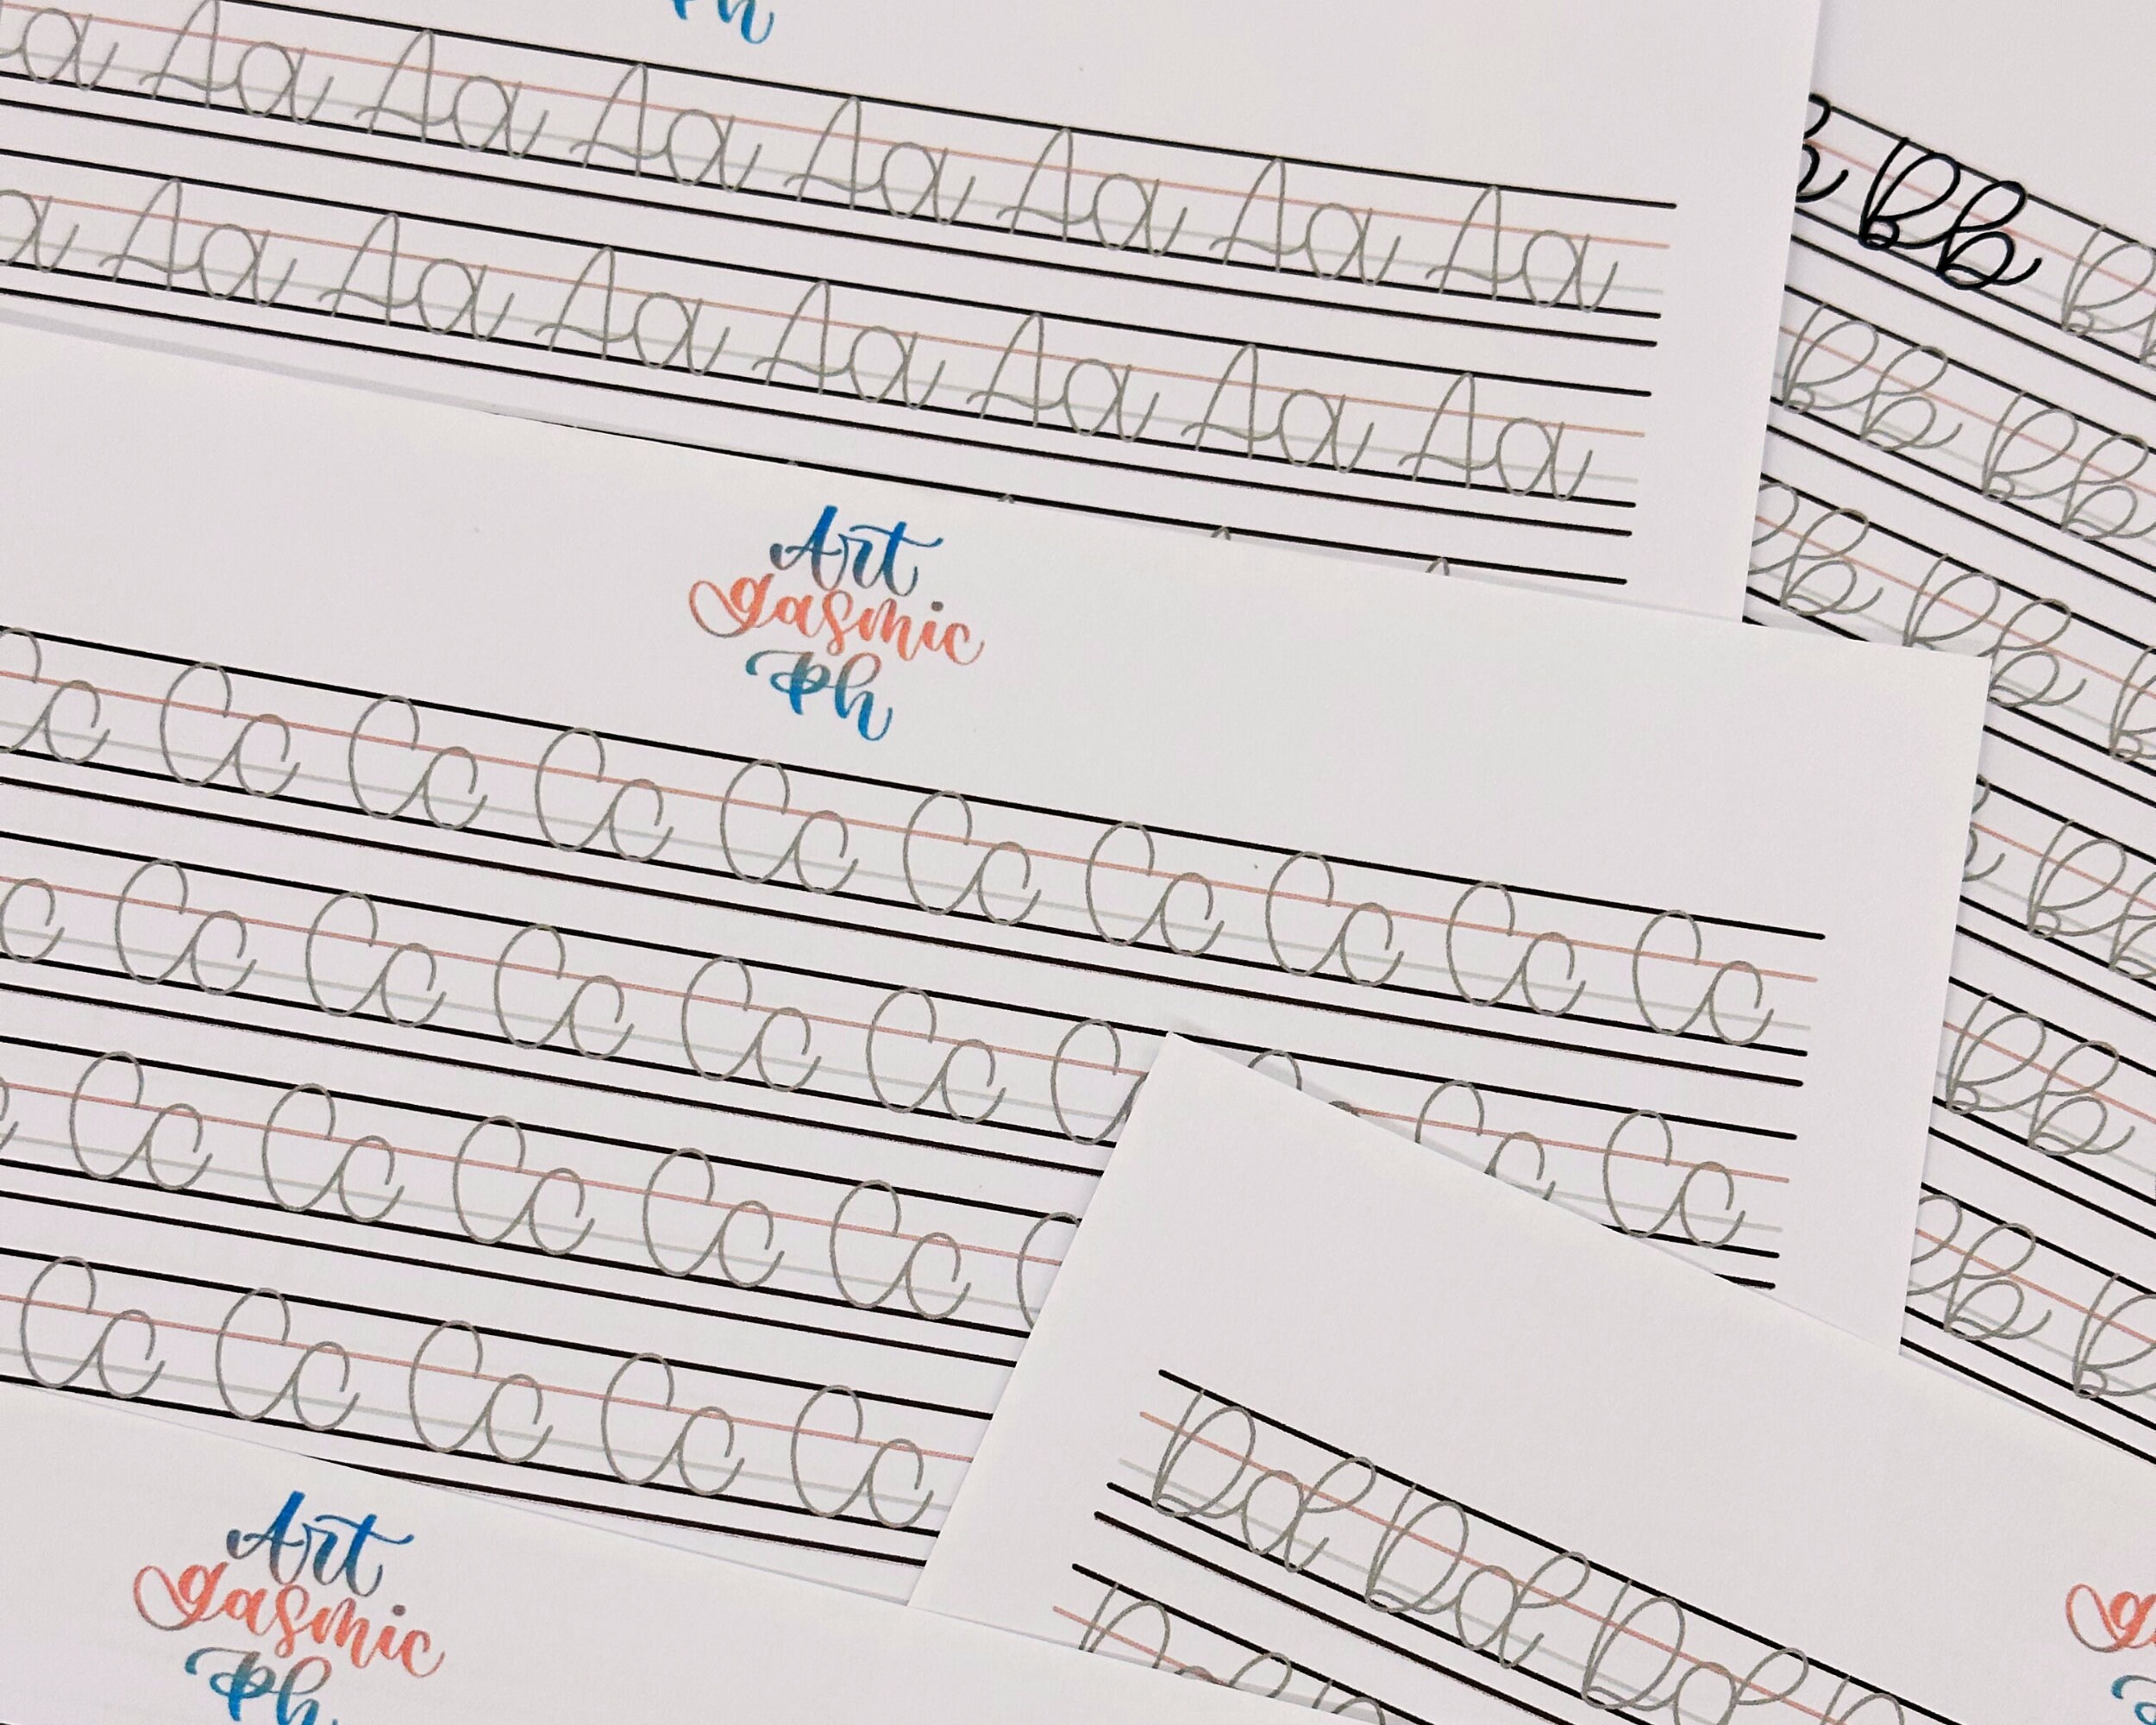 Ph
a Aa Aa Aa Aa Aa Aa Aa
a Aa Aa Aa Aa Aa Aa Aa
b Bb B
Bb Bb
Bb Bb B
Bb
Bb
Bb B
Art
gasmic
Ph
Cc Cc Cc Cc Cc Cc Cc Cc Cc Cc
c Cc Cc Cc Cc Cc C Cc Cc
Cc Cc Cc Cc Cc
Cc Cc Cc Cc Cc
Art
gasmic
Ph
Dd Dd Dd
Dd